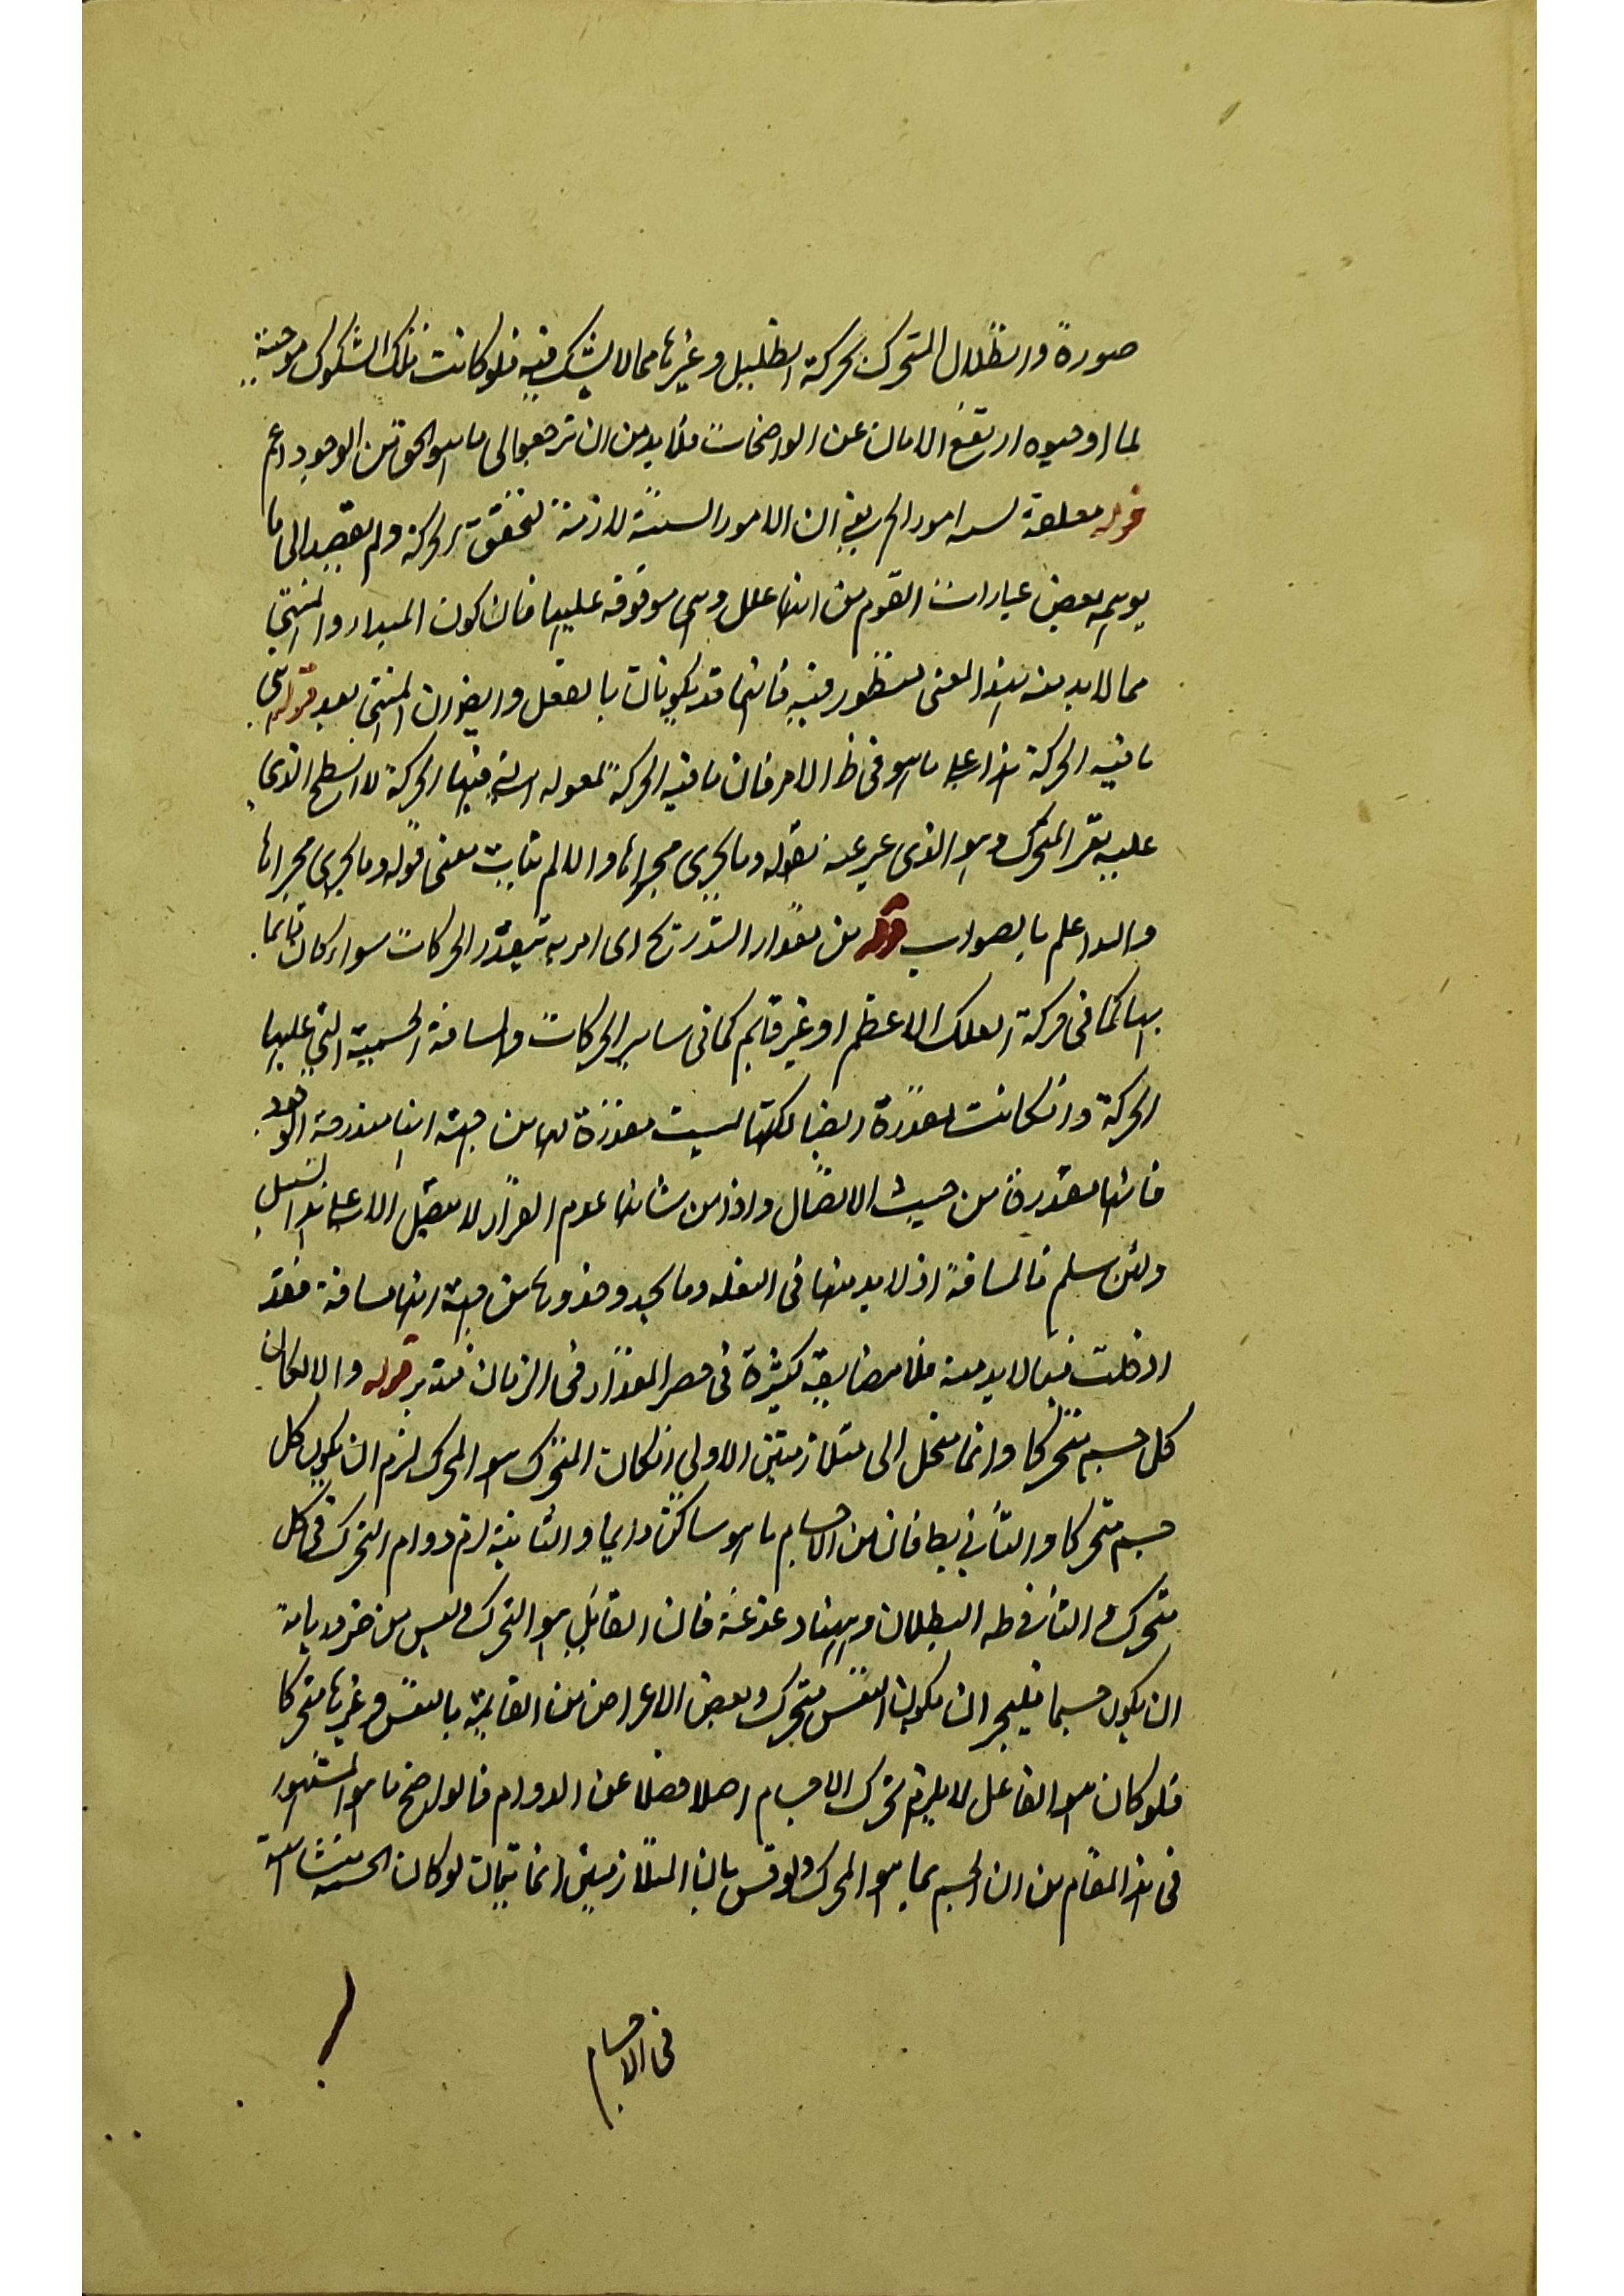 صورة والظلال المتحرك بحركة الظليل وغيرها مما لا يشك فيه فلو كانت تلك الشكوك موجبة
لما اوجبوه ارتفع الامان عن الواضحات فلا بد من ان ترجعوا الى ما هو الحق من الوجود اعم
قوله معلقة بستة امور الخ يعني ان الامور الستة لازمة لتحقق الحركة ولم يقصد الى ما
يوهمه بعض عبارات القوم من انها علل وهي موقوفة عليها فان كون المبدا والمنتهى
مما لا بد منه بهذا المعنى منظور فيه فانهما قد يكونان بالفعل وايضا ان المنتهى بعد قوله اي
ما فيه الحركة هذا على ما هو في ظ الامر فان ما فيه الحركة لمقولة التي فيها الحركة لا السطح الذي
عليه يقر المتحرك وهو الذي عبر عنه بقوله وما يجري مجراها والا لم يثبت معنى قوله وما يجري مجراها
والله اعلم بالصواب قوله من مقدار التدريج اى امر به يتقدر الحركات سواء كان قائما
بها كما في حركة الفلك الاعظم او غير قايم كما في ساير الحركات والمسافة الجسمية التي عليها
الحركة وان كانت مقدرة ايضا لكنها ليست مقدرة لها من جهة انها مندرجة الوجود
فانها مقدرة من حيث الاتصال واذ من شانها عدم القرار لا يقبل الا على هذا السبيل
ولئن سلم فالمسافة اذ لا بد منها في النقلة وما يحذو حذوها من جهة انها مسافة فقد
ادخلت فيما لا بد منه فلا مضايقة كثيرة في حصر المقدار في الزمان فتدبر قوله والا لكان
كل جسم متحركا وانما ينحل الى متلازمتين الاولى ان كان المتحرك هو المحرك لزم ان يكون كل
جسم متحركا والتالي بط فان من الاجسام ما هو ساكن دايما والثانية لزم دوام التحرك في كل
متحرك والتالي ظه البطلان وههنا دغدغة فان القابل هو التحرك وليس من ضرورياته
ان يكون جسما فيجر ان يكون النفس متحرك وبعض الاعراض من القايمة بالنفس وغيرها متحركا
فلو كان هو الفاعل لا يلزم تحرك الاجسام اصلا فضلا عن الدوام فالواضح ما هو المشهور
في هذا المقام من ان الجسم بما هو المحرك ولو قس بان المتلازمتين انما يتمان لو كان الجسمية متشابهة
في الاجسام